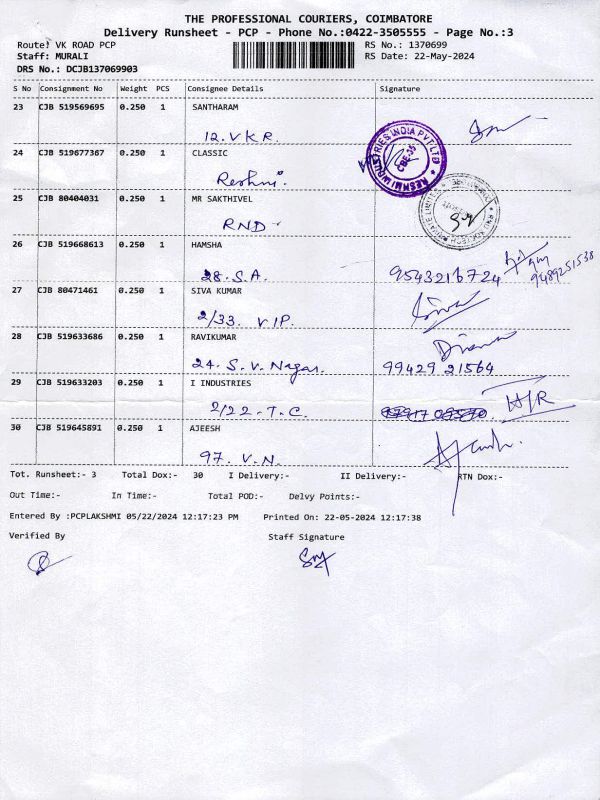 THE PROFESSIONAL COURIERS, COIMBATORE
Delivery Runsheet - PCP - Phone No.:0422-3505555 - Page No.:3
Route: VK ROAD PCP RS No.: 1370699
Staff: MURALI RS Date: 22-May-2024
DRS No.: DCJB137069903
S No Consignment No Weight PCS Consignee Details Signature
23 CJB 519569695 0.250 1 SANTHARAM
12.V.K.R.
24 CJB 519677367 0.250 1 CLASSIC
Reshmi.
RESHMI INDUSTRIES INDIA PVT LTD
CBE-35
25 CJB 80404031 0.250 1 MR SAKTHIVEL
RND
26 CJB 519668613 0.250 1 HAMSHA
28.S.A. 9543216724 9489251538
27 CJB 80471461 0.250 1 SIVA KUMAR
2/33. VIP. Siva
28 CJB 519633686 0.250 1 RAVIKUMAR
24. S.V. Nagar. 99429 21564
29 CJB 519633203 0.250 1 I INDUSTRIES
2/22.T.C.
30 CJB 519645891 0.250 1 AJEESH
97. V.N.
Tot. Runsheet:- 3 Total Dox:- 30 I Delivery:- II Delivery:- RTN Dox:-
Out Time:- In Time:- Total POD:- Delvy Points:-
Entered By :PCPLAKSHMI 05/22/2024 12:17:23 PM Printed On: 22-05-2024 12:17:38
Verified By Staff Signature